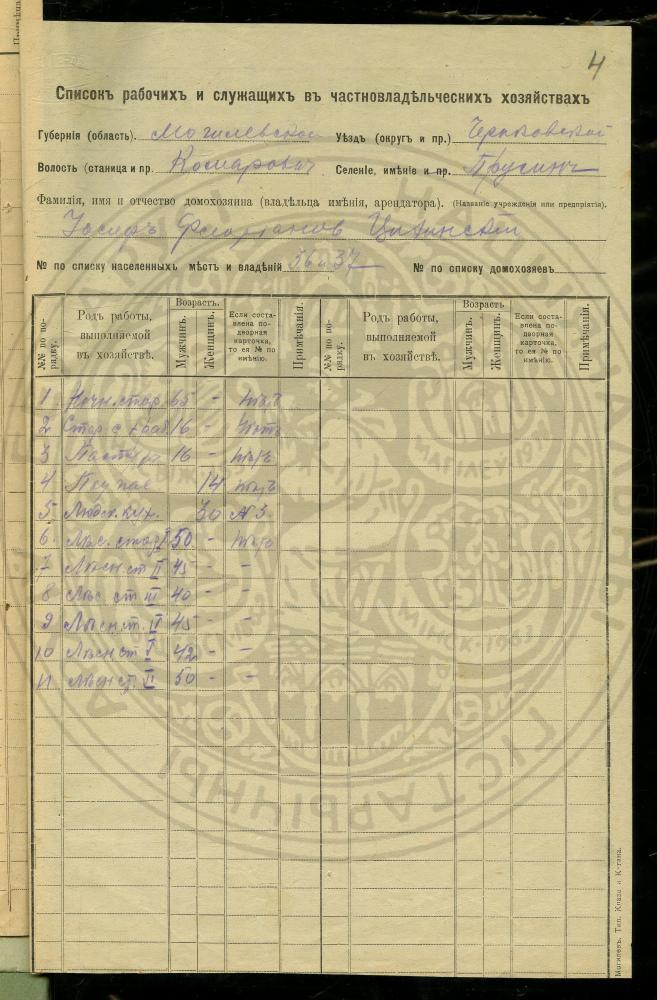 4
Списокъ рабочихъ и служащихъ въ частновладѣльческихъ хозяйствахъ
Губернія (область). Могилевской Уѣздъ (округъ и пр.)
Волость (станица и пр. Комарович Селеніе, имѣніе и пр. Прусино
Фамилія, имя и отчество домохозяина (владѣльца имѣнія, арендатора). (Названіе учрежденія или предпріятія).
Іосифъ
№ по списку населенныхъ мѣстъ и владѣній 56 и 37 № по списку домохозяевъ
№№ по порядку. Родъ работы, выполняемой въ хозяйствѣ. Возрастъ. Мужчинъ. Женщинъ. Если составлена подворная карточка, то ея № по имѣнію. Примѣчанія. №№ по порядку. Родъ работы, выполняемой въ хозяйствѣ. Возрастъ Мужчинъ. Женщинъ. Если составлена подворная карточка, то ея № по имѣнію. Примѣчанія.
1 Ночн. стор. 65 - нѣтъ
2 16 - нѣтъ
3 Пастухъ 16 - нѣтъ
4 14 нѣтъ
5 Людск. кух. 30 № 3.
6 Лѣс. стор. I 50 - нѣтъ
7 Лѣсн ст II 45 - -
8 Лѣс ст III 40 - -
9 Лѣсн. ст. IV 45 - -
10 Лѣсн ст V 42 - -
11 Лѣсн ст. VI 50 - -
Могилевъ, Тип. Клаза и К-гана.